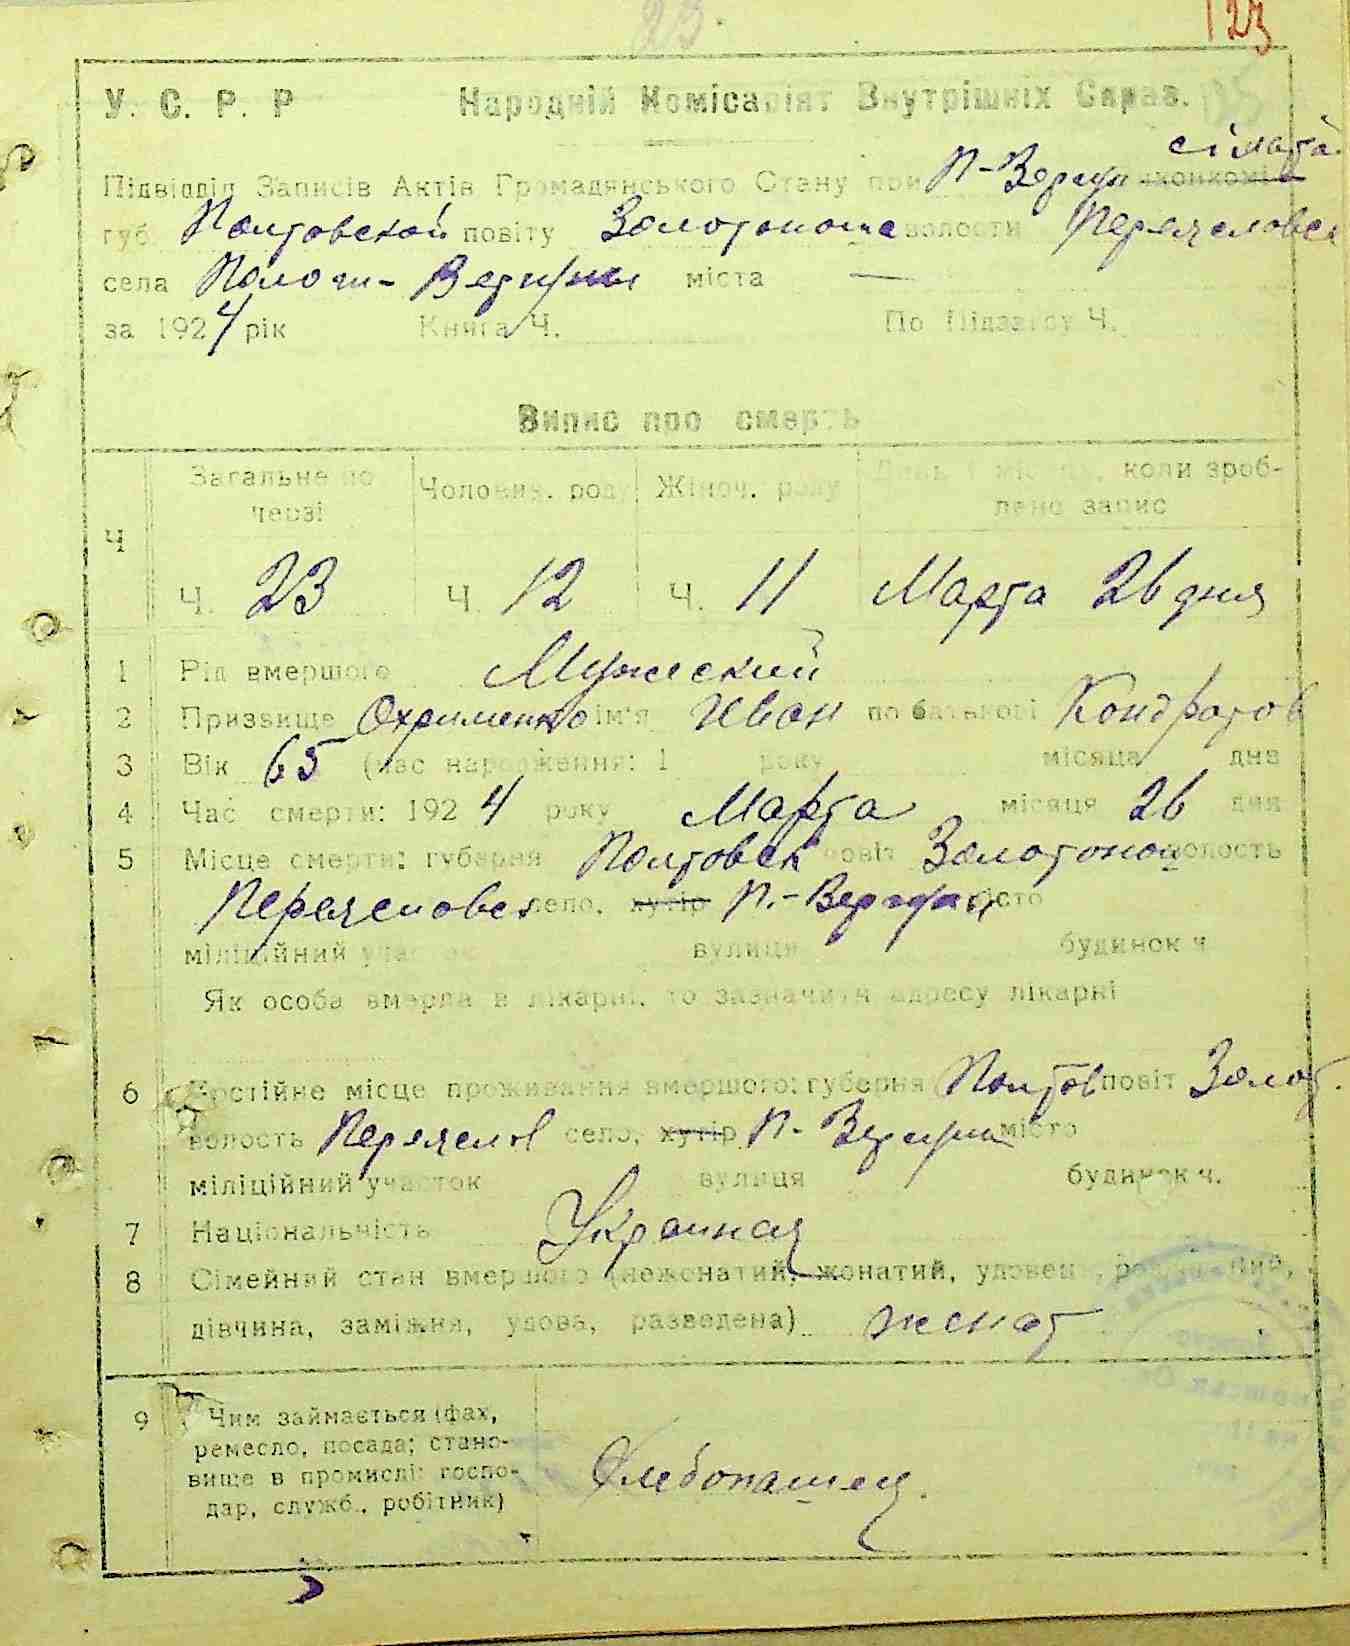 23
123
У. С. Р. Р Народній Комісаріят Внутрішніх Справ.
сільрада
Підвідділ Записів Актів Громадянського Стану при П-Вергун
губ. Полтовской повіту Золотоноша волости Перяеловск
села Полош- Вергуны міста —
за 1924 рік Книга Ч. По Підзагсу Ч.
Випис про смерть
Ч Загальне по черзі Чоловіч. роду Жіноч. роду День і місяць, коли зроб-
лено запис
Ч. 23 Ч. 12 Ч. 11 Марта 26 дня
1 Рід вмершого Мужеский
2 Призвище Охрименко ім'я Иван по батькові Кондратов
3 Вік 65 (час народження: 1 року місяця дня
4 Час смерти: 1924 року Марта місяця 26 дня
5 Місце смерти: губерня Полтовск повіт Золотонош волость
село, хутір П.-Вергуны місто
міліційний участок вулиця будинок ч
Як особа вмерла в лікарні, то зазначити адресу лікарні
6 Постійне місце проживання вмершого: губерня Полтов повіт Золот.
волость село, хутір П- Вергуны місто
міліційний участок вулиця будинок ч.
7 Національність
8 Сімейний стан вмершого (неженатий, жонатий, удовець, разведений,
дівчина, заміжня, удова, разведена) женат
9 Чим займається (фах,
ремесло, посада; стано-
вище в промислі: госпо-
дар, служб., робітник) Хлебопашец.